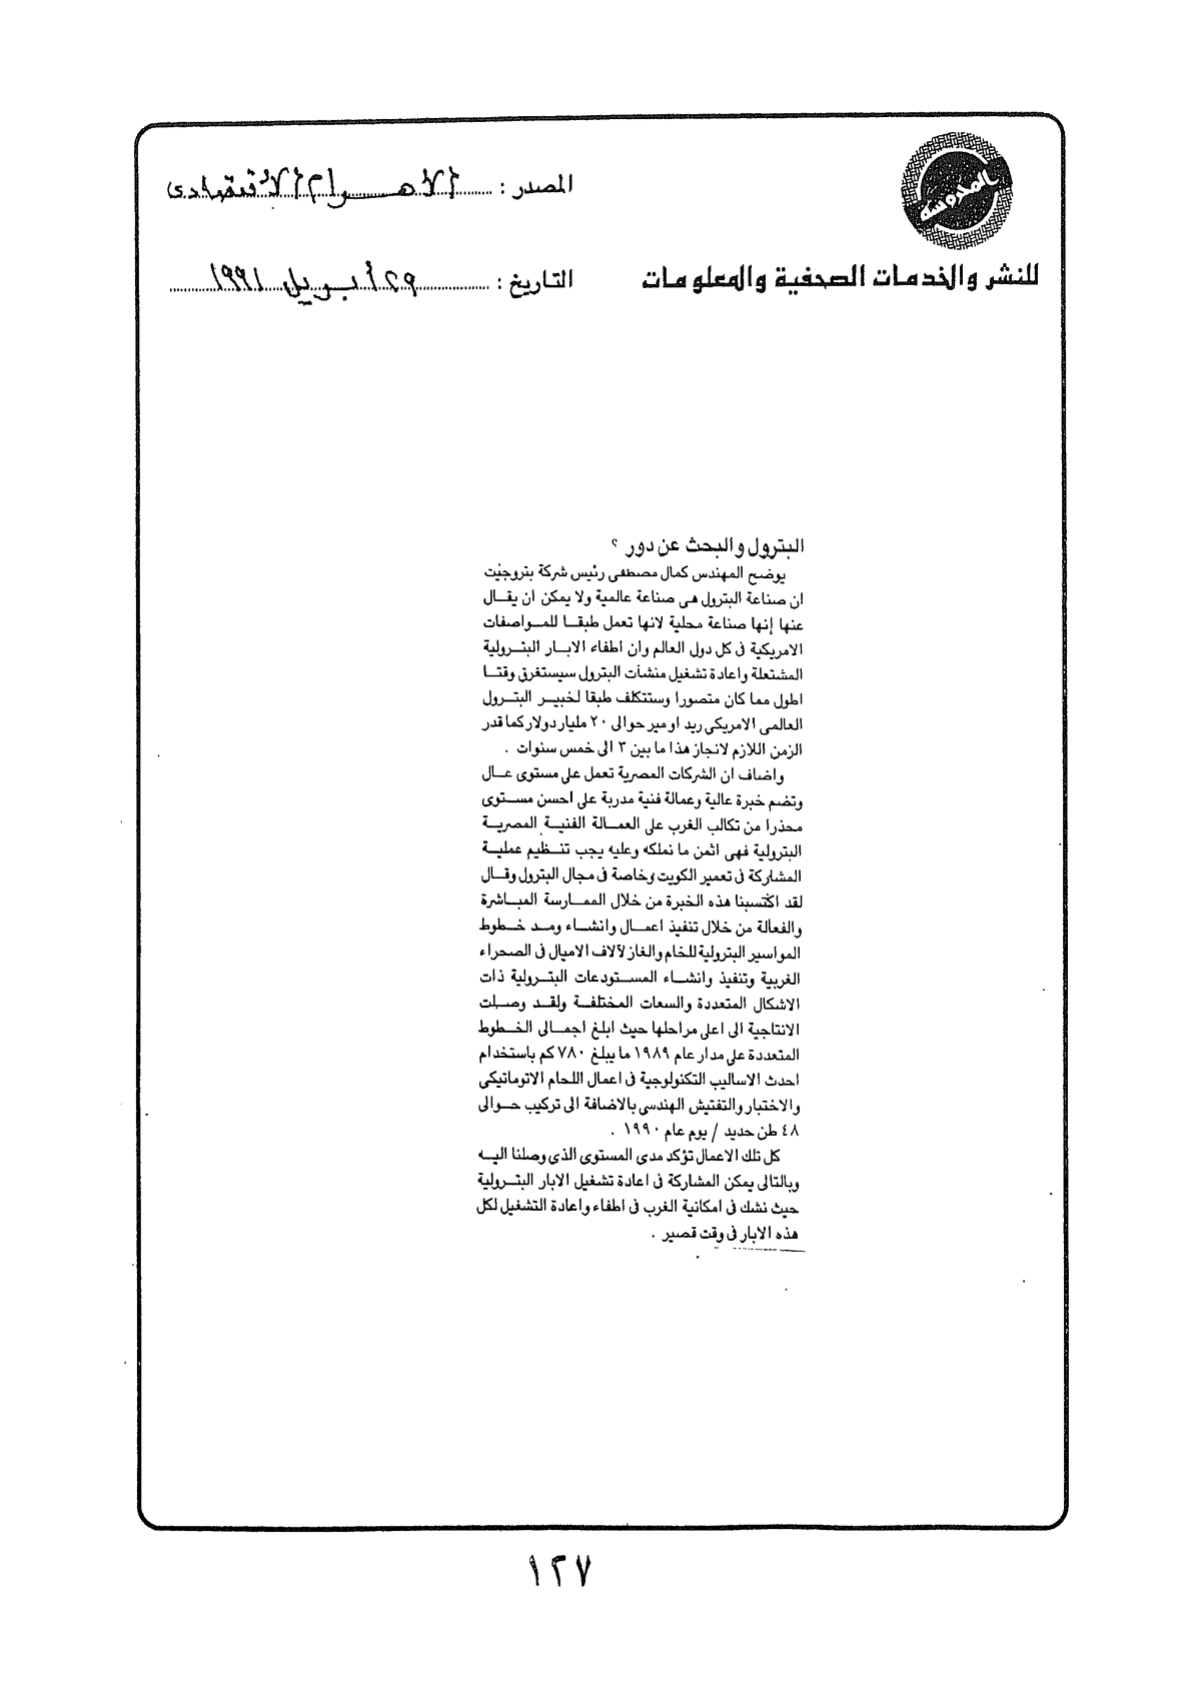 المحروسة
للنشر والخدمات الصحفية والمعلومات
المصدر : الأهرام الاقتصادى
التاريخ : ٢٩ أبريل ١٩٩١
البترول والبحث عن دور ؟
يوضح المهندس كمال مصطفى رئيس شركة بتروجيت
ان صناعة البترول هى صناعة عالمية ولا يمكن ان يقال
عنها إنها صناعة محلية لانها تعمل طبقا للمواصفات
الامريكية فى كل دول العالم وان اطفاء الابار البترولية
المشتعلة واعادة تشغيل منشآت البترول سيستغرق وقتا
اطول مما كان متصورا وستتكلف طبقا لخبير البترول
العالمى الامريكى ريد اومير حوالى ٢٠ مليار دولار كما قدر
الزمن اللازم لانجاز هذا ما بين ٣ الى خمس سنوات .
واضاف ان الشركات المصرية تعمل على مستوى عال
وتضم خبرة عالية وعمالة فنية مدربة على احسن مستوى
محذرا من تكالب الغرب على العمالة الفنية المصرية
البترولية فهى اثمن ما نملكه وعليه يجب تنظيم عملية
المشاركة فى تعمير الكويت وخاصة فى مجال البترول وقال
لقد اكتسبنا هذه الخبرة من خلال الممارسة المباشرة
والفعالة من خلال تنفيذ اعمال وانشاء ومد خطوط
المواسير البترولية للخام والغاز لآلاف الاميال فى الصحراء
الغربية وتنفيذ وانشاء المستودعات البترولية ذات
الاشكال المتعددة والسعات المختلفة ولقد وصلت
الانتاجية الى اعلى مراحلها حيث ابلغ اجمالى الخطوط
المتعددة على مدار عام ١٩٨٩ ما يبلغ ٧٨٠ كم باستخدام
احدث الاساليب التكنولوجية فى اعمال اللحام الاتوماتيكى
والاختبار والتفتيش الهندسى بالاضافة الى تركيب حوالى
٤٨ طن حديد / يوم عام ١٩٩٠ .
كل تلك الاعمال تؤكد مدى المستوى الذى وصلنا اليه
وبالتالى يمكن المشاركة فى اعادة تشغيل الابار البترولية
حيث نشك فى امكانية الغرب فى اطفاء واعادة التشغيل لكل
هذه الابار فى وقت قصير .
١٢٧